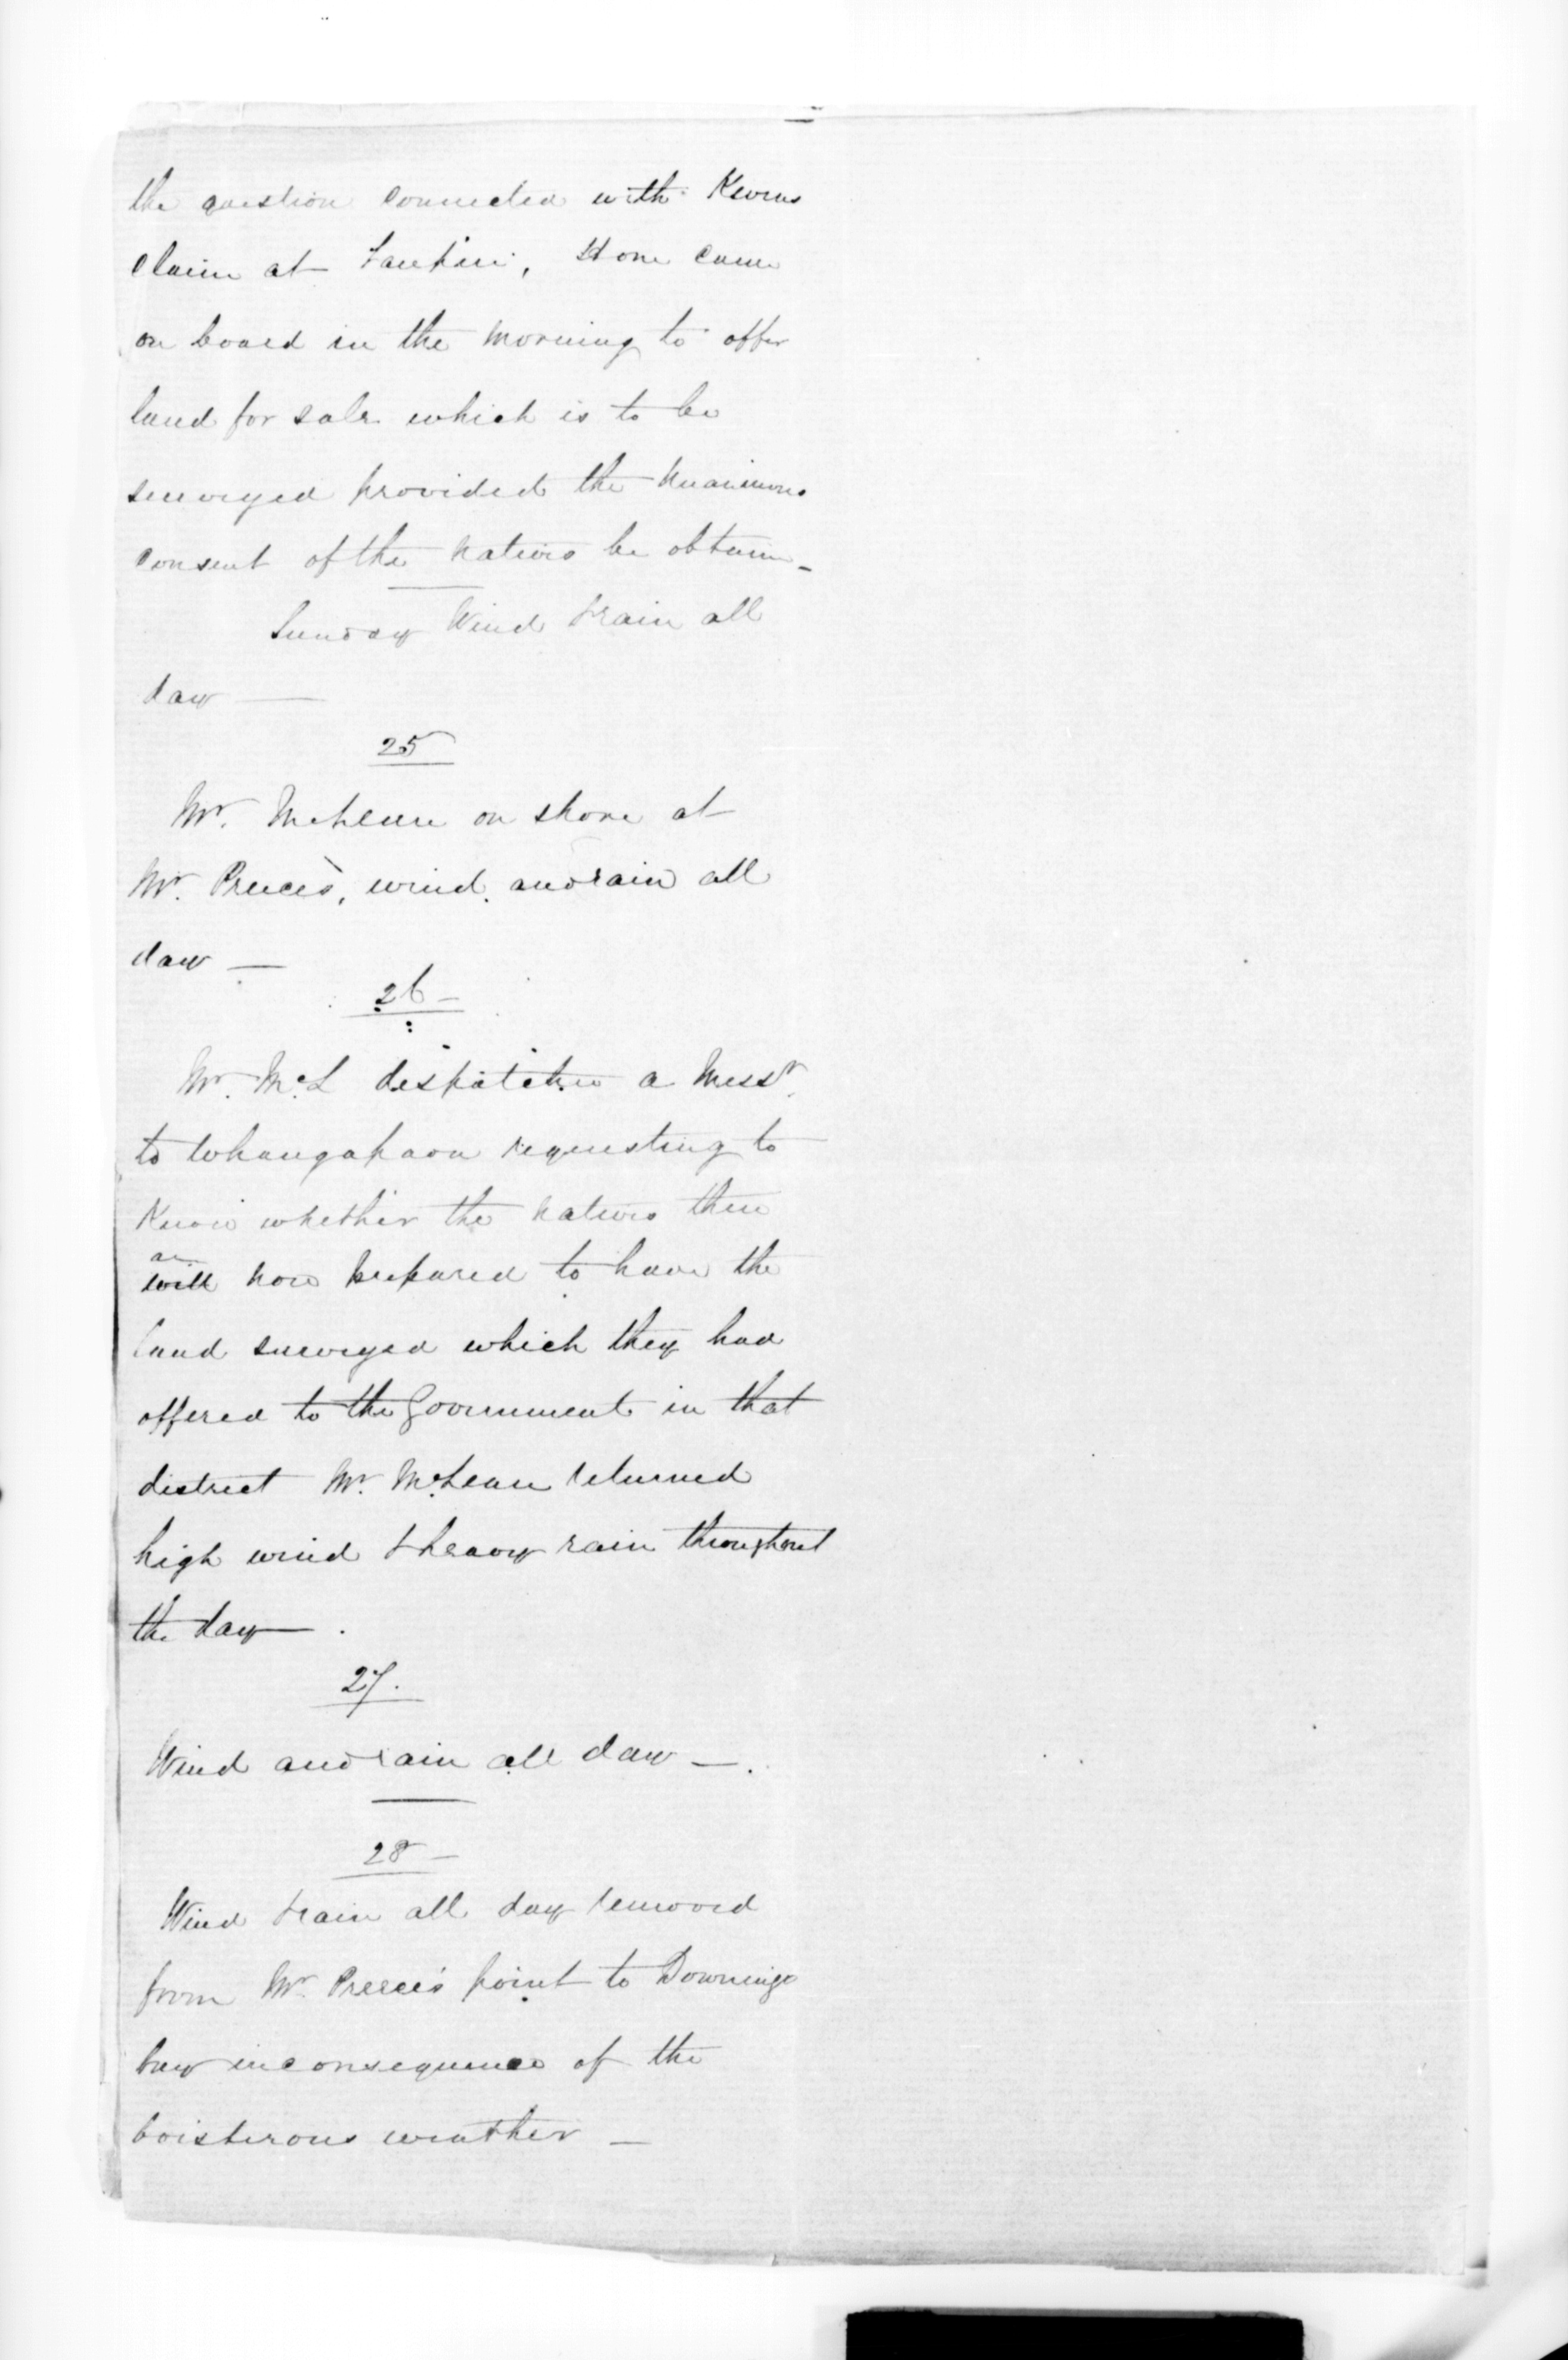 the question connected with
claim at                some came
on board in the morning to offer
land for sale which is to be
surveyed provided the unanimous
consent of the natives be obtain
Sunday Wind & rain all
day —
25
Mr. McLean on shore at
Mr. Preece's, wind and rain all
day —
26 —
Mr. McL despatches a Messr.
to Whangapaoa requesting to
Know whether the natives there
are
will now prepared to have the
land surveyed which they had
offered to the Government in that
district Mr. McLean returned
high wind & heavy rain throughout
the day — .
27.
Wind and rain all day — .
28 —
Wind & rain all day removed
from Mr. Preece's point to Downings
bay in consequence of the
boisterous weather —